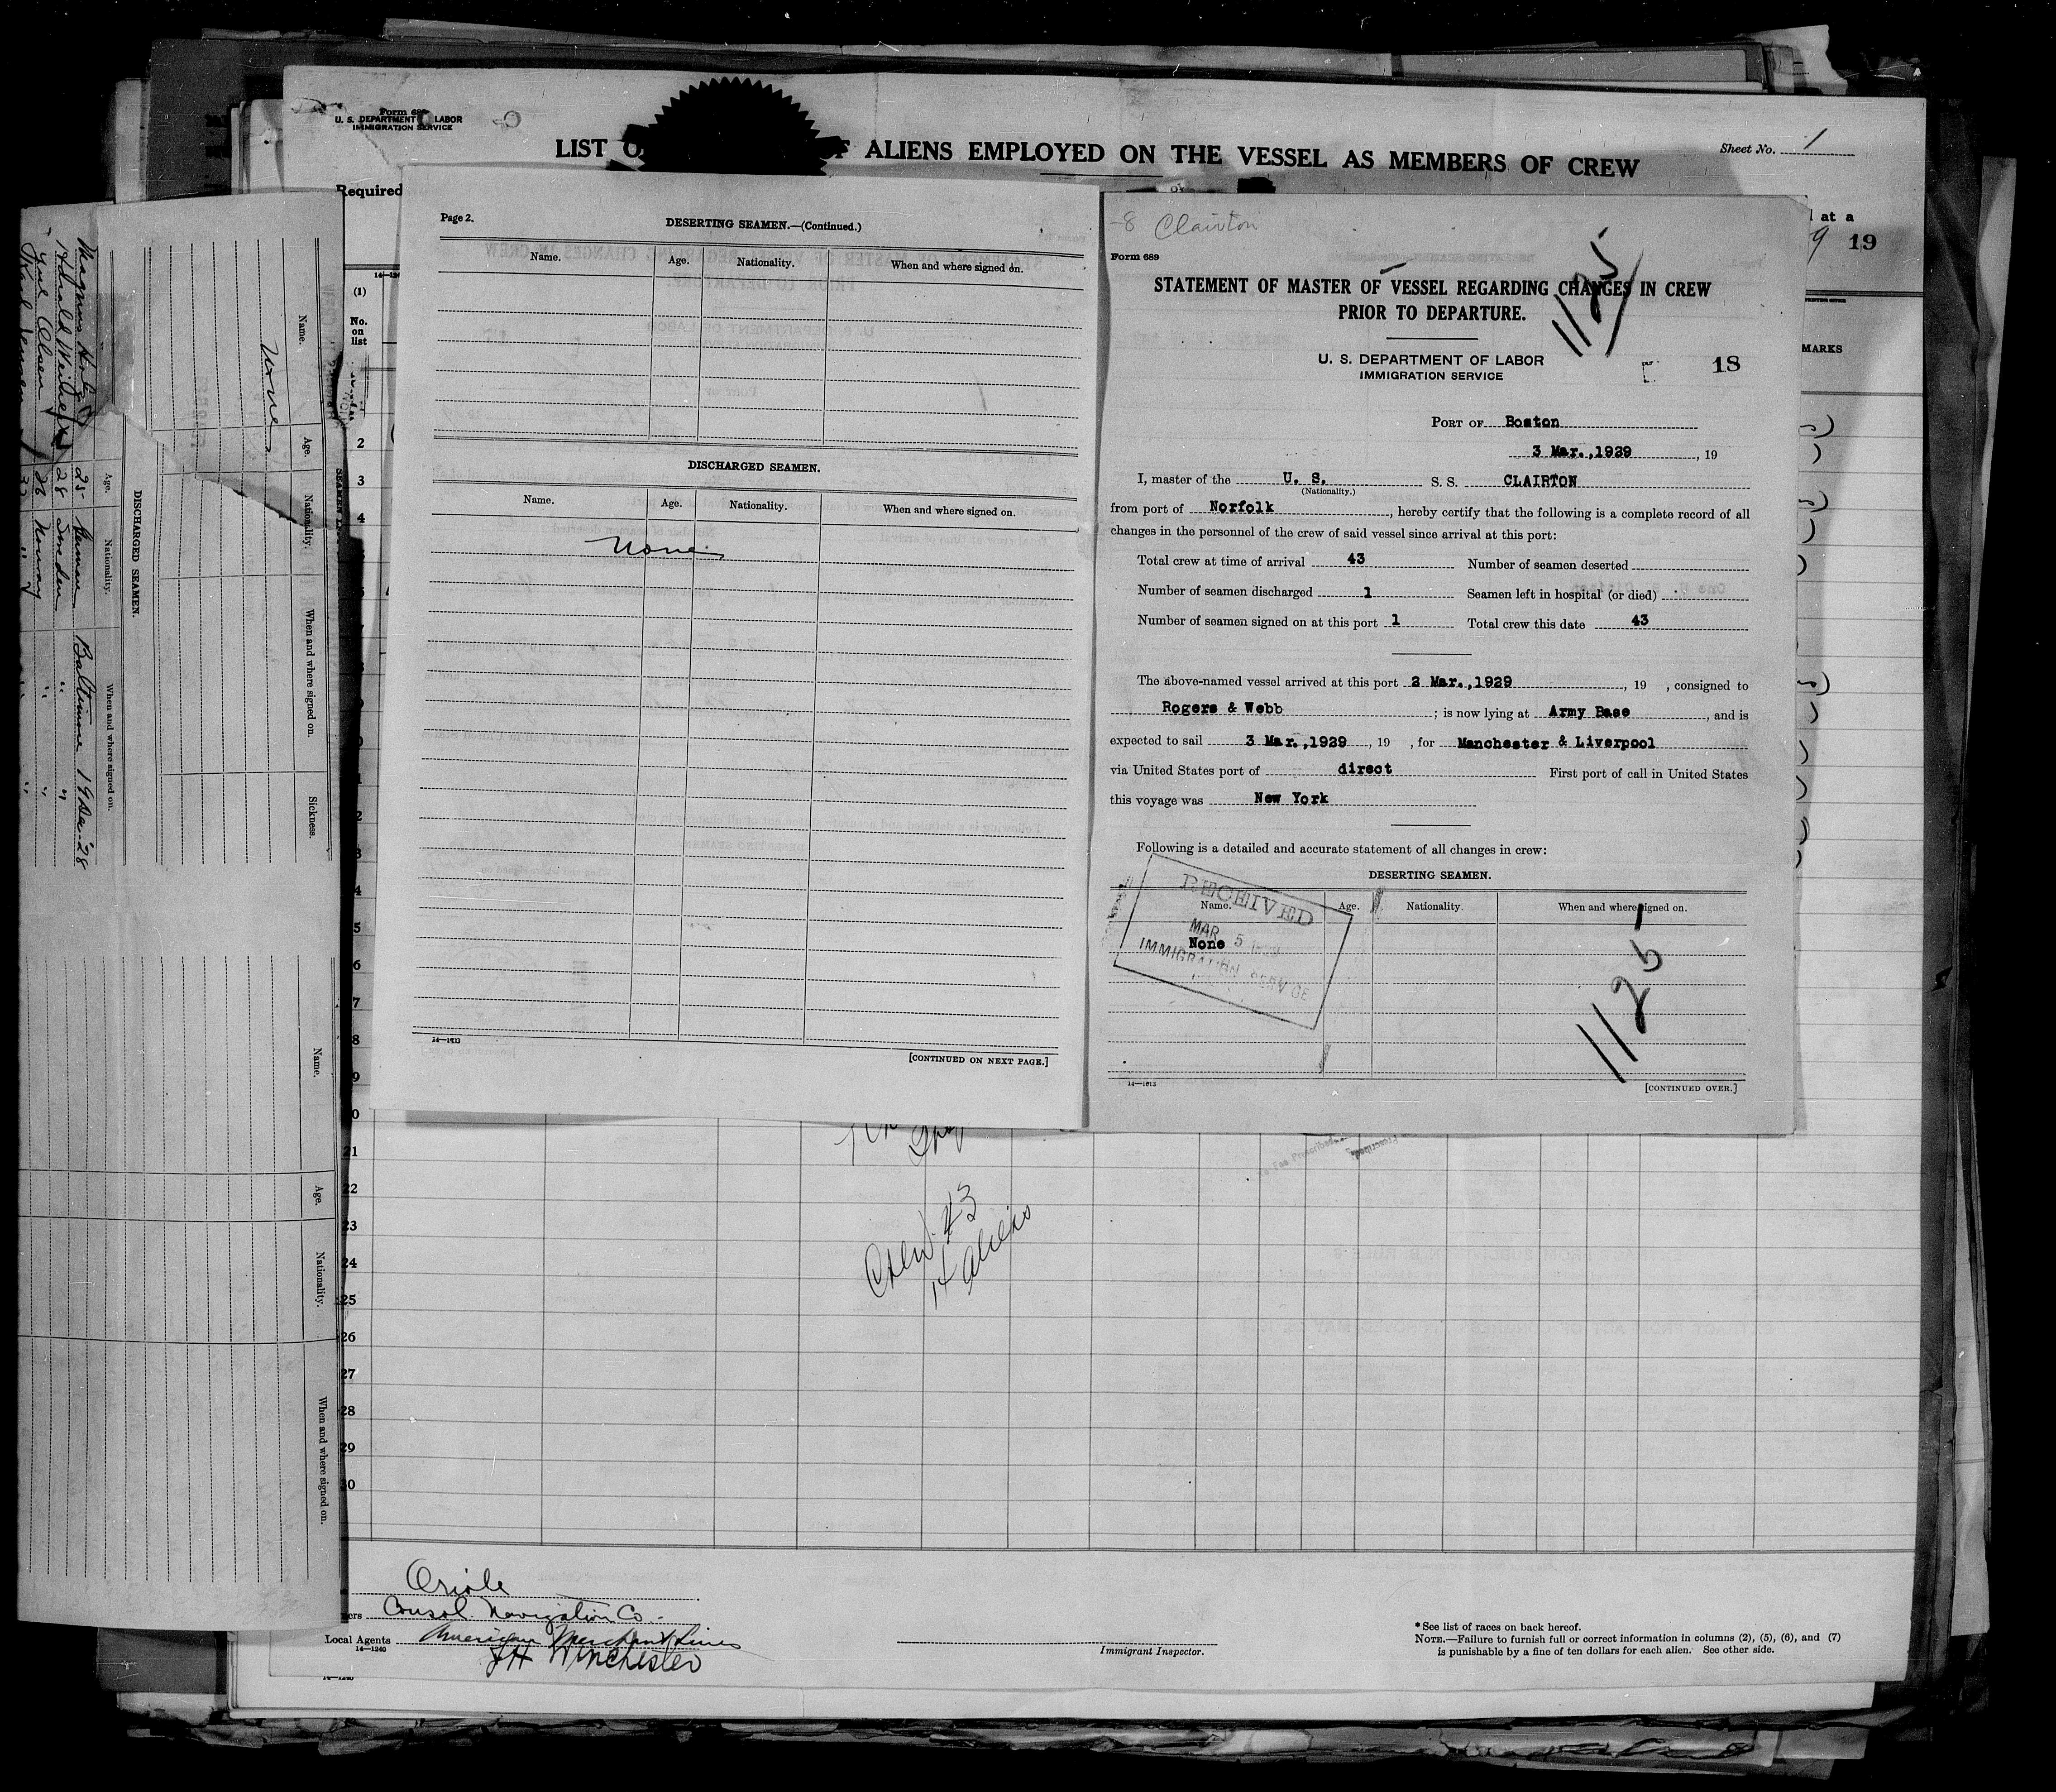 Form 689
U. S. DEPARTMENT LABOR
IMMIGRATION SERVICE
LIST O F ALIENS EMPLOYED ON THE VESSEL AS MEMBERS OF CREW
Sheet No. 1
Required
l at a
9 19
MARKS
(1)
No.
on
list
2
3
4
Page 2.
DESERTING SEAMEN.—(Continued.)
Name. Age. Nationality. When and where signed on.
DISCHARGED SEAMEN.
Name. Age. Nationality. When and where signed on.
None
14—1213
[CONTINUED ON NEXT PAGE.]
-8 Clairton
Form 689
1125
STATEMENT OF MASTER OF VESSEL REGARDING CHANGES IN CREW
PRIOR TO DEPARTURE.
U. S. DEPARTMENT OF LABOR
IMMIGRATION SERVICE
18
PORT OF Boston
3 Mar.,1929, 19
I, master of the U. S. S. S. CLAIRTON
(Nationality.)
from port of Norfolk, hereby certify that the following is a complete record of all
changes in the personnel of the crew of said vessel since arrival at this port:
Total crew at time of arrival 43 Number of seamen deserted
Number of seamen discharged 1 Seamen left in hospital (or died)
Number of seamen signed on at this port 1 Total crew this date 43
The above-named vessel arrived at this port 2 Mar.,1929, 19 , consigned to
Rogers & Webb; is now lying at Army Base, and is
expected to sail 3 Mar.,1929, 19 , for Manchester & Liverpool
via United States port of direct First port of call in United States
this voyage was New York
Following is a detailed and accurate statement of all changes in crew:
DESERTING SEAMEN.
Name. Age. Nationality. When and where signed on.
None
RECEIVED
MAR 5
IMMIGRATION SERVICE
1125
14—1213
[CONTINUED OVER.]
Name. Age. Nationality. When and where signed on. Sickness.
None
DISCHARGED SEAMEN.
Age. Nationality. When and where signed on.
25 German Baltimore 19 Dec 28
28 Sweden " "
Olsen 26 Norway " "
Karl Jensen 32 " " "
Name. Age. Nationality. When and where signed on.
21
22
23
24
25
26
27
28
29
30
Crew 43
14 aliens
Oriole
Consol. Navigation Co.
Local Agents American Merchant Lines
14—1240
JH Winchester
Immigrant Inspector.
*See list of races on back hereof.
NOTE.—Failure to furnish full or correct information in columns (2), (5), (6), and (7)
is punishable by a fine of ten dollars for each alien. See other side.